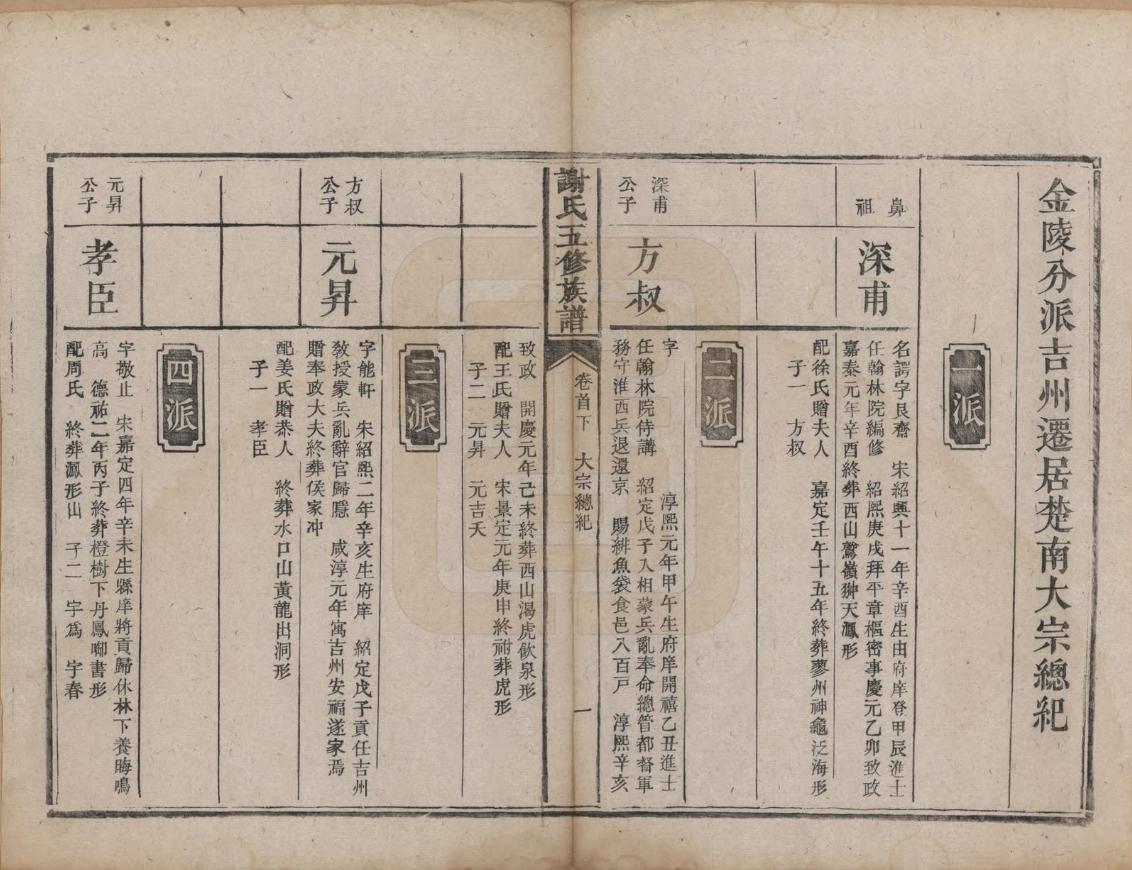 金陵分派吉州遷居楚南大宗總紀
一派
鼻祖
深甫
名諤字艮齋 宋紹興十一年辛酉生由府庠登甲辰進士
任翰林院編修 紹熙庚戌拜平章樞密事慶元乙卯致政
嘉泰元年辛酉終葬西山鷲嶺翀天鳳形
配徐氏贈夫人 嘉定壬午十五年終葬蓼州神龜泛海形
子一 方叔
二派
深甫公子
方叔
字 淳熙元年甲午生府庠開禧乙丑進士
任翰林院侍講 紹定戊子入相蒙兵亂奉命總管都督軍
務守淮西兵退還京 賜緋魚袋食邑八百戶 淳熙辛亥
謝氏五修族譜
卷首下 大宗總紀 一
致政 開慶元年己未終葬西山渴虎飲泉形
配王氏贈夫人 宋景定元年庚申終祔葬虎形
子二 元昇 元吉夭
三派
方叔公子
元昇
字能軒 宋紹熙二年辛亥生府庠 紹定戊子貢任吉州
敎授蒙兵亂辭官歸隱 咸淳元年寓吉州安福遂家焉
贈奉政大夫終葬侯家冲
配姜氏贈恭人 終葬水口山黃龍出洞形
子一 孝臣
四派
元昇公子
孝臣
字敬止 宋嘉定四年辛未生縣庠將貢歸休林下養晦鳴
高 德祐二年丙子終葬橙樹下丹鳳啣書形
配周氏 終葬鳳形山 子二 宇爲 宇春